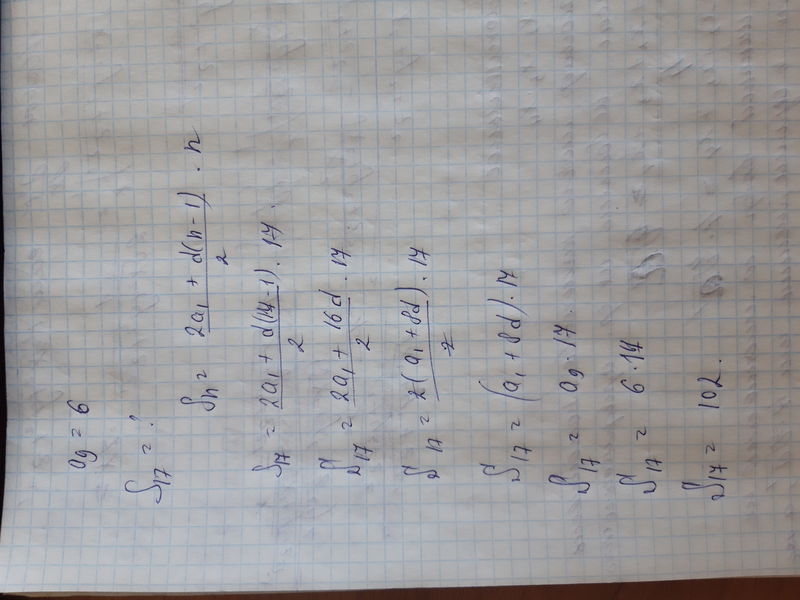 a₉ = 6
S₁₇ = ?
Sₙ = (2a₁ + d(n - 1))/2 · n
S₁₇ = (2a₁ + d(17 - 1))/2 · 17.
S₁₇ = (2a₁ + 16d)/2 · 17
S₁₇ = 2(a₁ + 8d)/2 · 17
S₁₇ = (a₁ + 8d) · 17
S₁₇ = a₉ · 17.
S₁₇ = 6 · 17
S₁₇ = 102.